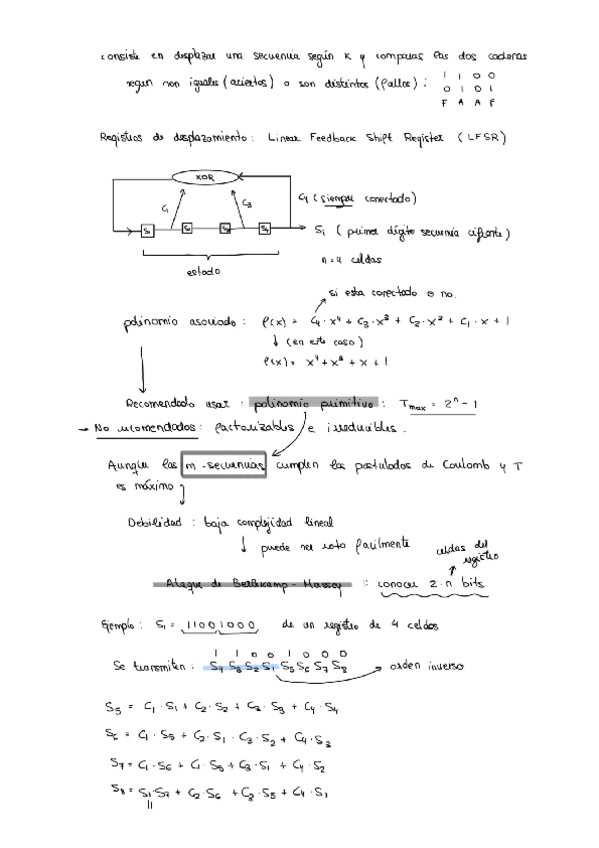 consiste en desplazar una secuencia según K y comparas las dos cadenas
según son iguales (aciertos) o son distintos (fallos):
1 1 0 0
0 1 0 1
F A A F
Registros de desplazamiento: Linear Feedback Shift Register (LFSR)
XOR
C1
C3
C4 (siempre conectado)
S1 S2 S3 S4
Si (primer dígito secuencia cifrante)
n=4 celdas
estado
si esta conectado o no.
polinomio asociado: P(x) = C4·x⁴ + C3·x³ + C2·x² + C1·x + 1
↓ (en este caso)
P(x) = x⁴+x³+x+1
Recomendado usar: polinomio primitivo: Tmax = 2ⁿ-1
→ No recomendados: factorizables e irreducibles.
Aunque las m-secuencias cumplen los postulados de Coulomb y T
es máximo
Debilidad: baja complejidad lineal
↓ puede ser rota fácilmente
celdas del
registro
Ataque de Berlekamp-Massey : conocer 2·n bits
Ejemplo: Si = 11001000 de un registro de 4 celdas
1 1 0 0 1 0 0 0
Se transmiten: S4 S3 S2 S1 S5 S6 S7 S8 → orden inverso
S5 = C1·S1 + C2·S2 + C3·S3 + C4·S4
S6 = C1·S5 + C2·S1 · C3·S2 + C4·S3
S7 = C1·S6 + C·S5 + C3·S1 + C4·S2
S8 = S1·S7 + C2·S6 + C2·S5 + C4·S1